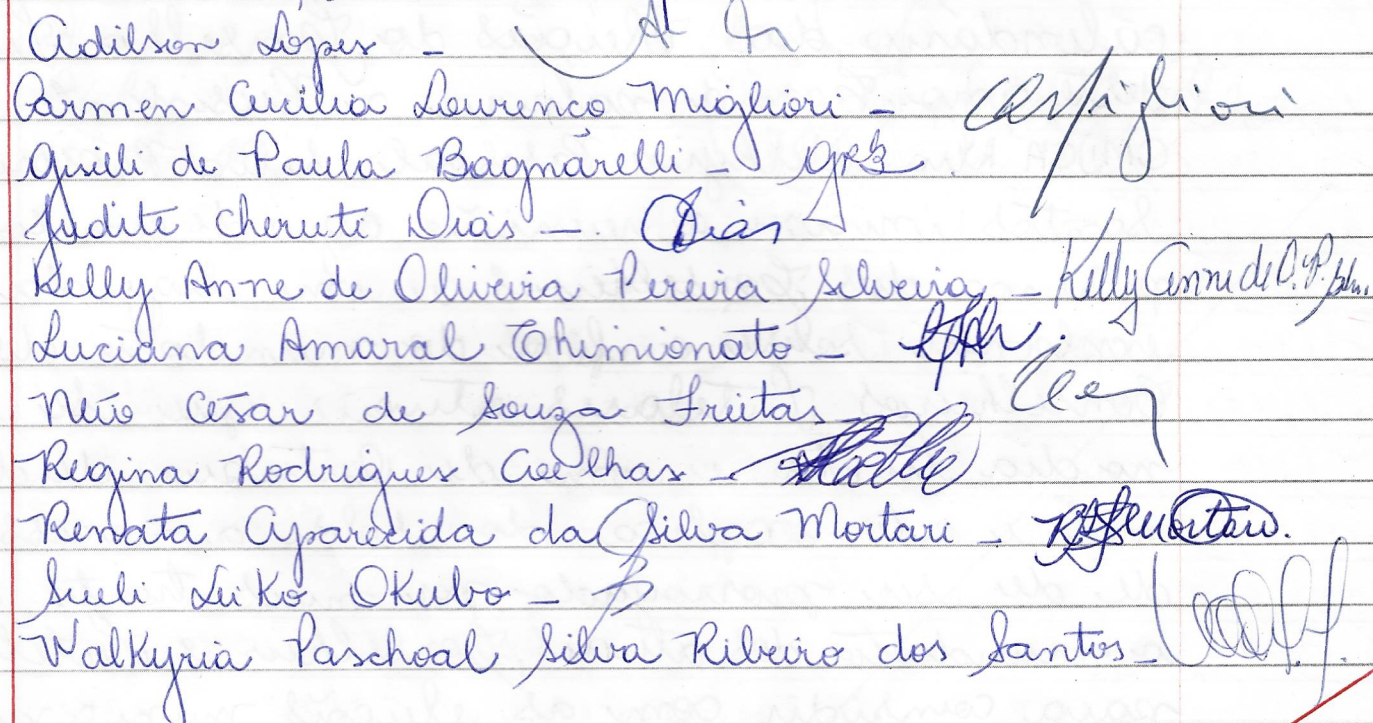 Adilson Lopes -
Carmen Cecilia Lourenço Migliori - Migliori
Giseli de Paula Bagnarelli - GPB.
Judite Cherute Dias - Dias
Kelly Anne de Oliveira Pereira Silveira - Kelly Anne de O. P. Silv.
Luciana Amaral Thimionato -
Neio César de Souza Freitas
Regina Rodrigues Coelhas -
Renata Aparecida da Silva Mortari - Mortari.
Sueli Leiko Okubo -
Walkyria Paschoal Silva Ribeiro dos Santos -